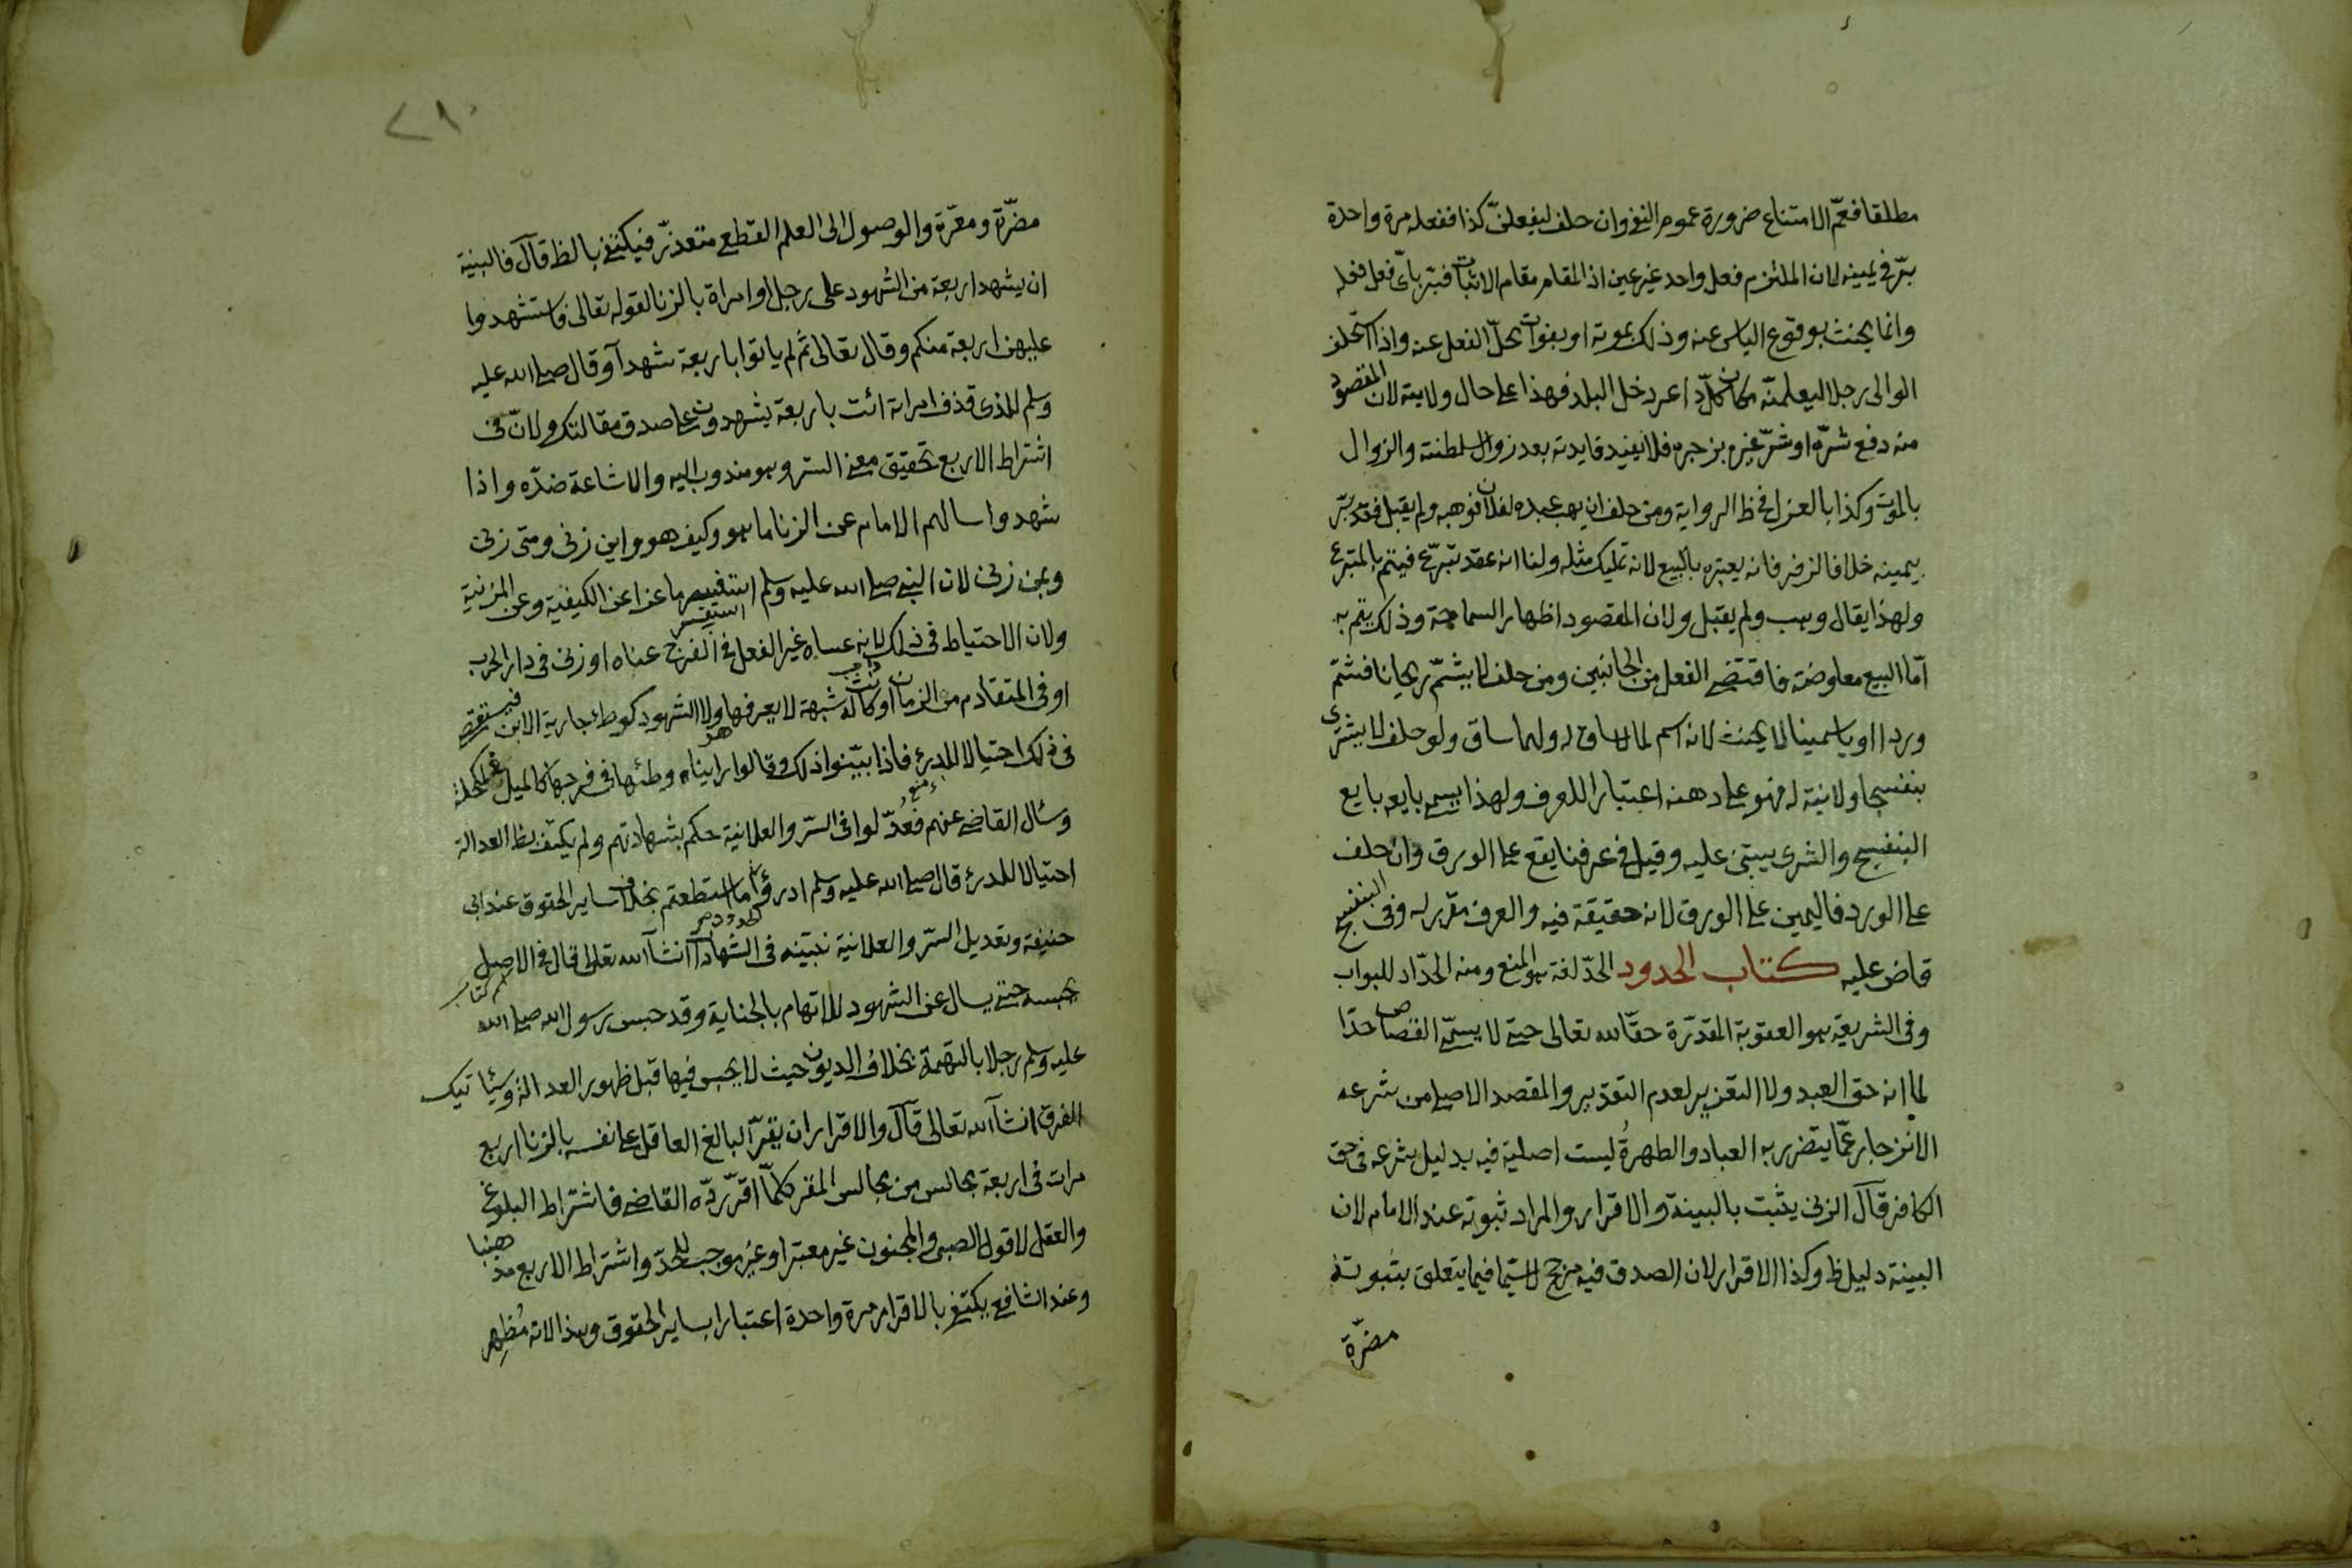 مطلقا فعمّ الامتناع ضرورة عموم النفي وان حلف ليفعلنّ كذا ففعله مرة واحدة
برّ في يمينه لان الملتزم فعل واحد غير عين اذ المقام مقام الاثبات فيبر بايّ فعل فعله
وانما يحنث بوقوع الياس عنه وذلك بموته او بفوات محلّ الفعل عنه واذا استحلف
الوالى رجلا ليعلمنّه بكل داعر دخل البلد فهذا على حال ولايته لان المقصود
منه دفع شرّه او شرّ غيره بزجره فلا يفيد فايدته بعد زوال السلطنة والزوال
بالموت وكذا بالعزل في ظ الرواية ومن حلف ان يهب عبده لفلان فوهبه ولم يقبل فقد برّ
بيمينه خلافا لزفر فانه يعتبره بالبيع لانه تمليك مثله ولنا انه عقد تبرّع فيتم بالمتبرع
ولهذا يقال وهب ولم يقبل ولان المقصود اظهار السماحة وذلك يتم به
امّا البيع معاوضة فاقتضى الفعل من الجانبين ومن حلف لا يشمّ ريحانا فشمّ
وردا او ياسمينا لا يحنث لانه اسم لما لا ساق له ولهما ساق ولو حلف لا يشترى
بنفسجا ولا نية له فهو على دهنه اعتبارا للعرف ولهذا يسمى بايعه بايع
البنفسج والشرى يبتنى عليه وقيل في عرفنا يقع على الورق وان حلف
على الورد فاليمين على الورق لانه حقيقة فيه والعرف مقرر له وفى البنفسج
قاض عليه كتاب الحدود الحدّ لغة هو المنع ومنه الحدّاد للبواب
وفى الشريعة هو العقوبة المقدّرة حقّا لله تعالى حتى لا يسمّى القصاص حدّا
لما انه حق العبد ولا التعزير لعدم التقدير والمقصد الاصلى من شرعه
الانزجار عمّا يتضرر به العباد والطهرة ليست اصلية فيه بدليل شرعه في حق
الكافر قال الزنى يثبت بالبينة والاقرار والمراد ثبوته عند الامام لان
البينة دليل ظ وكذا الاقرار لان الصدق فيه مرجح لاسيّما فيما يتعلق بثبوته
مضرّة
٢١٠
مضرّة ومعرّة والوصول الى العلم القطعى متعذر فيكتفى بالظ قال فالبينة
ان يشهد اربعة من الشهود على رجل او امراة بالزنا لقوله تعالى فاستشهدوا
عليهن اربعة منكم وقال تعالى ثم لم ياتوا باربعة شهدآ وقال صلى الله عليه
وسلم للذى قذف امراته ائت باربعة يشهدون على صدق مقالتك ولانّ فى
اشتراط الاربع تحقيق معنى الستر وهو مندوب اليه والاشاعة ضدّه واذا
شهدوا سالهم الامام عن الزنا ما هو وكيف هو واين زنى ومتى زنى
وبمن زنى لان النبي صلى الله عليه وسلم استفسر ماعزا عن الكيفية وعن المزنية
استفسر
ولان الاحتياط فى ذلك واجب لانه عساه غير الفعل في الفرج عناه او زنى فى دار الحرب
او فى المتقادم من الزمان او كانت له شبهة لا يعرفها هو ولا الشهود كوطئ جارية الابن فيستقصى
فى ذلك احتيالا للدرئ فاذا بيّنوا ذلك وقالوا رايناه وطئها فى فرجها كالميل في المكحلة
وسئال القاضى عنهم فعُدّلوا فى السرّ والعلانية حكم بشهادتهم ولم يكتف بظ العدالة
احتيالا للدرئ قال صلى الله عليه وسلم ادرؤا الحدود ما استطعتم بخلاف ساير الحقوق عند ابى
حنيفة وتعديل السرّ والعلانية نبينه فى الشهادات انشآ الله تعالى قال فى الاصل
يحبسه حتى يسال عن الشهود للاتهام بالجناية وقد حبس رسول الله صلى الله
عليه وسلم رجلا بالتهمة بخلاف الديون حيث لا يحبس فيها قبل ظهور العدالة وسيأتيك
الفرق انشآ الله تعالى قال والاقرار ان يقرّ البالغ العاقل على نفسه بالزنا اربع
مرات فى اربعة مجالس من مجالس المقر كلمّا اقرّ ردّه القاضى فاشتراط البلوغ
والعقل لان قول الصبى والمجنون غير معتبر او غير موجب للحدّ واشتراط الاربع مذهبنا
وعند الشافعى يكتفى بالاقرار مرة واحدة اعتبارا بساير الحقوق وهذا لانه مُظهِر